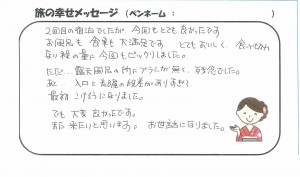 旅の幸せメッセージ（ペンネーム：　　　）
2回目の宿泊でしたが、今回もとても良かったです
お風呂も 食事も 大満足です とてもおいしく、食べきれ
ない程の量に 今回もビックリしました。
ただ… 露天風呂の所に が無く、残念でした。
あと… 入口に の段差がありすぎて、
最初 こけそうになりました。
でも 大変 良かったです。
また 来たいと思います。 お世話になりました。